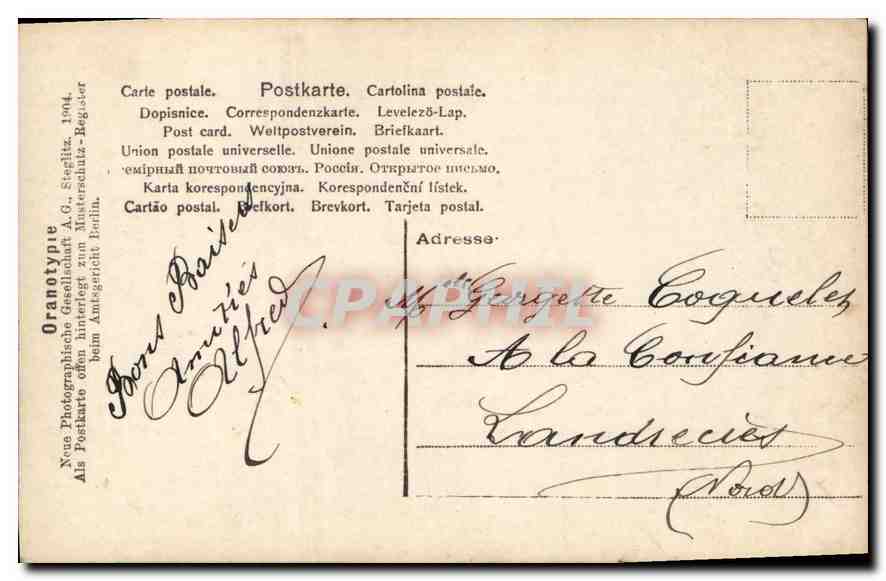 Oranotypie
Neue Photographische Gesellschaft A.G., Steglitz. 1904.
Als Postkarte offen hinterlegt zum Musterschutz-Register
beim Amtsgericht Berlin.
Carte postale. Postkarte. Cartolina postale.
Dopisnice. Correspondenzkarte. Levelező-Lap.
Post card. Weltpostverein. Briefkaart.
Union postale universelle. Unione postale universale.
емірный почтовый союзъ. Россія. Открытое письмо.
Karta korespondencyjna. Korespondenční lístek.
Cartão postal. Brefkort. Brevkort. Tarjeta postal.
Bons Baisers
Amitiés
Alfred
Adresse
Mlle Georgette Coquelet
A la Confiance
Landrecies
(Nord)
CPAPHIL